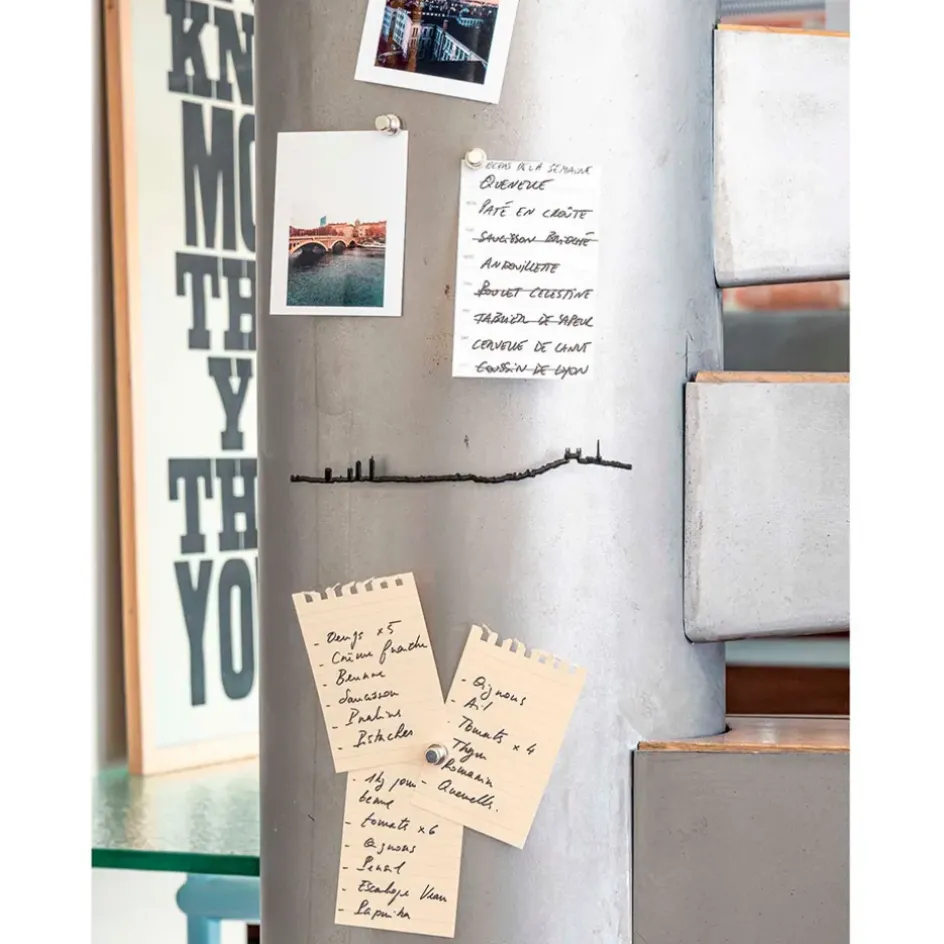 KN
MO
THY
THY
YO
REPAS DE LA SEMAINE
QUENELLE
PATÉ EN CROÛTE
SAUCISSON BRIOCHÉ
ANDOUILLETTE
POULET CELESTINE
TABLIER DE SAPEUR
CERVELLE DE CANUT
COUSSIN DE LYON
- Oeufs x5
- Crème fraîche
- Beurre
- Saucisson
- Pralines
- Pistaches
- Oignons
- Ail
- Tomates x 4
- Thym
- Romarin
- Quenelles.
- 1kg pom-
- tomates x6
- Oignons
- Persil
- Escalope Veau
- Paprika